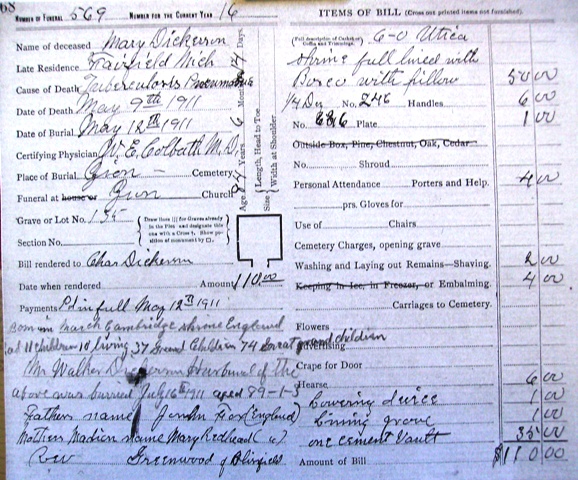 68
NUMBER OF FUNERAL 569 NUMBER FOR THE CURRENT YEAR 16
Name of deceased Mary Dickerson
Late Residence Fairfield Mich
Cause of Death Tuberculosis Pneumonia
Date of Death May 9th 1911
Date of Burial May 12th 1911
Certifying Physician W. E. Colbath M.D.
Place of Burial Zion — Cemetery
Funeral at house or Zion Church
Grave or Lot No. 135
Draw lines ||| for Graves already in the Plot and designate this one with a Cross †. Show position of monument by □.
Section No.
Bill rendered to Chas Dickerson
Date when rendered Amount 110.00
Payments Pd in full May 12th 1911
Born in March Cambridge shrone England
had 11 children 10 living 37 Grand Children 74 Great grand children
Mr Walker Dickerson Husband of the
above was burried July 16th 1911 aged 89-1-5
Fathers name John Fox (England)
Mothers Madien name Mary Redhead (")
Rev Greenwood of Blissfield
Age 84 Years 6 Months 14 Days
Length, Head to Toe
Size Width at Shoulder
ITEMS OF BILL (Cross out printed items not furnished).
(Full description of Casket or Coffin and Trimmings). 6-0 Utica
shrine full lined with
Bosco with pillow 50 00
1/4 Dz No. 246 Handles 6 00
No. 686 Plate 1 00
Outside Box, Pine, Chestnut, Oak, Cedar
No. Shroud
Personal Attendance Porters and Help. 4 00
prs. Gloves for
Use of Chairs
Cemetery Charges, opening grave
Washing and Laying out Remains—Shaving. 2 00
Keeping in Ice, in Freezer, or Embalming. 4 00
Carriages to Cemetery.
Flowers
Advertising
Crape for Door
Hearse 6 00
Lowering duice 1 00
Lining grove 1 00
one cement Vault 35 00
Amount of Bill $110 00